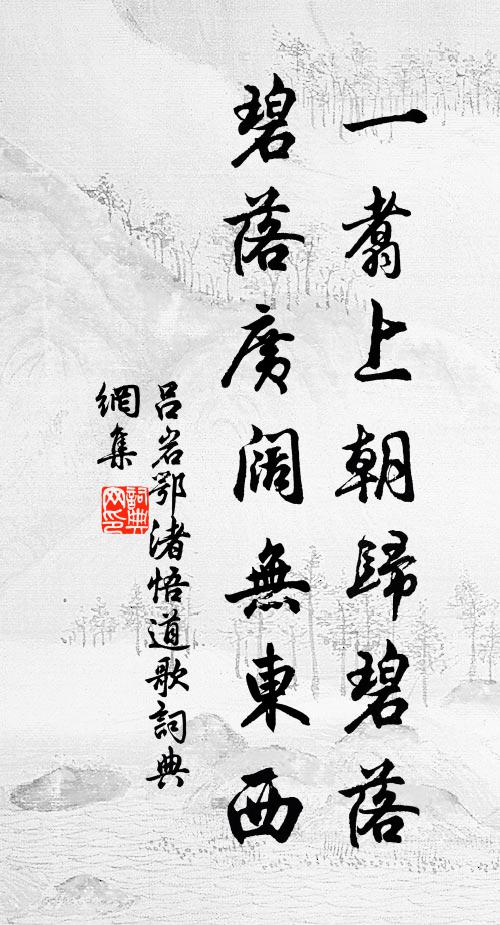 一翥上朝歸碧落
碧落廣闊無東西
呂岩鄂渚悟道歌詞典
網集
詞典
网印